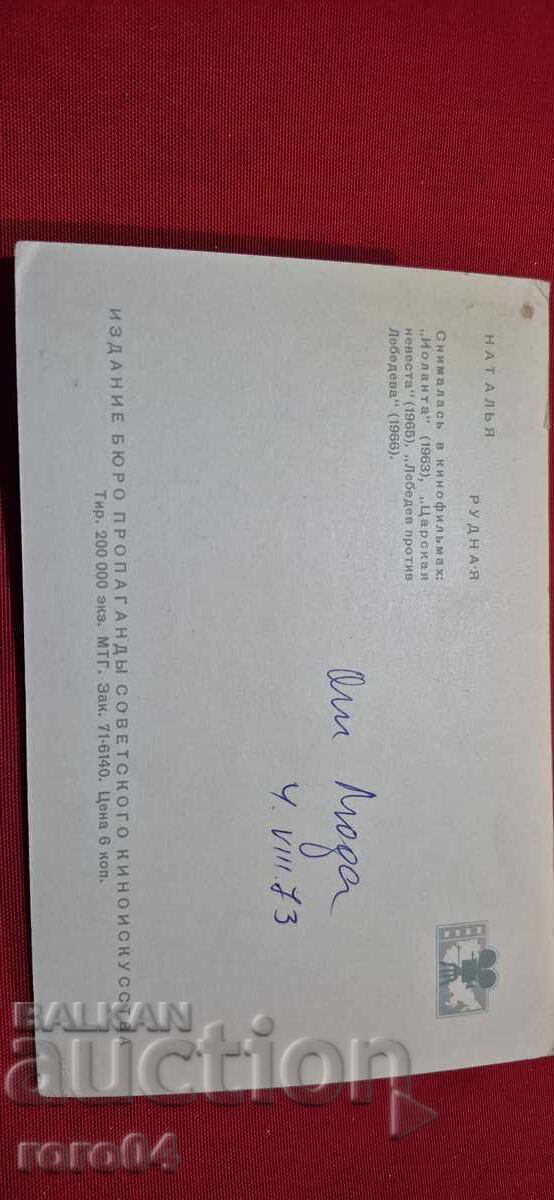 НАТАЛЬЯ РУДНАЯ
Снималась в кинофильмах:
„Иоланта“ (1963), „Царская
невеста“ (1965), „Лебедев против
Лебедева“ (1966).
От Люда
4. VIII. 73
ИЗДАНИЕ БЮРО ПРОПАГАНДЫ СОВЕТСКОГО КИНОИСКУССТВА
Тир. 200 000 экз. МТГ. Зак. 71-6140. Цена 6 коп.
BALKAN
auction
roro04